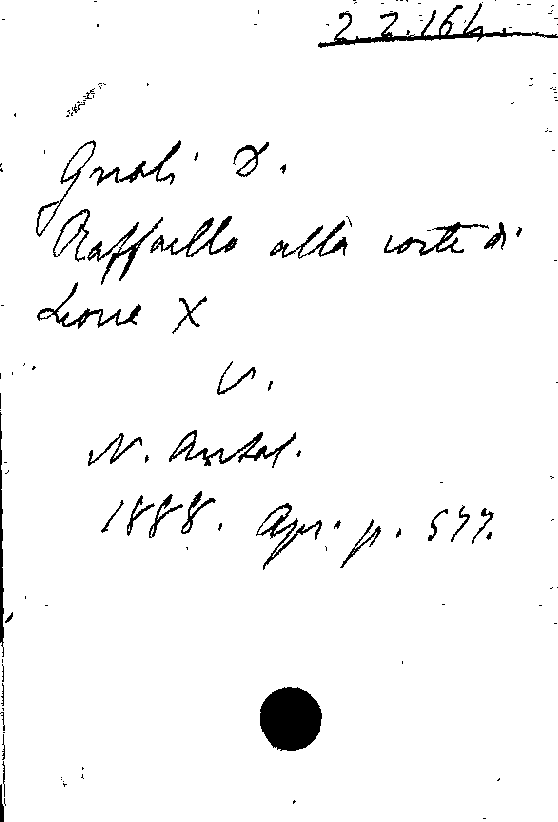 2.2.164.
Gnoli D.
Raffaello alla corte di
Leone X
V.
N. Antol.
1888. Apr. p. 577.